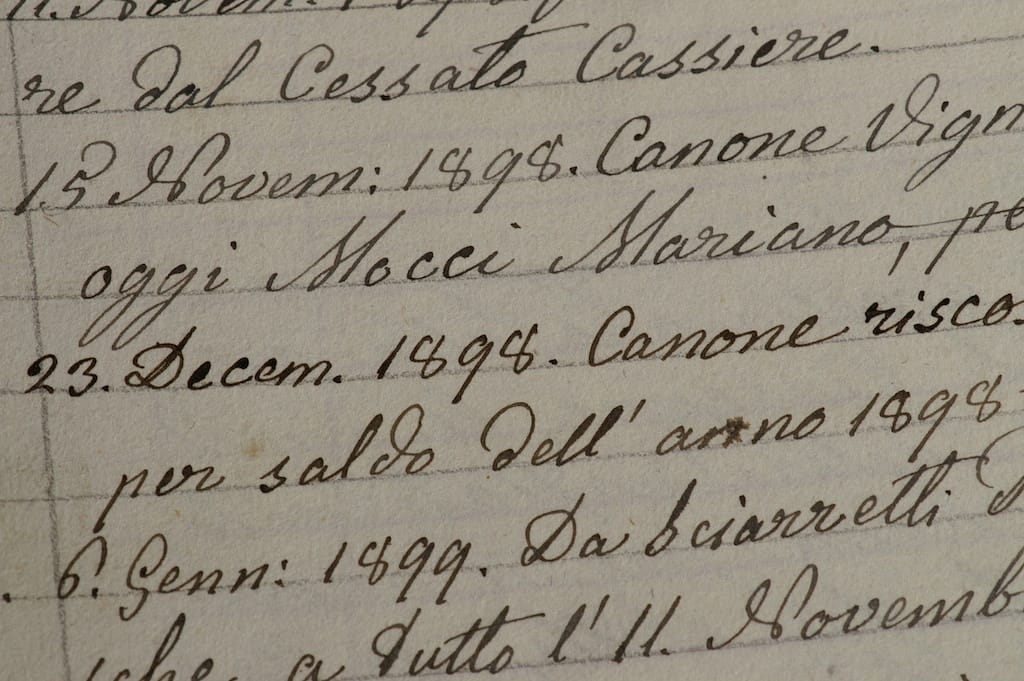 11. Novem:
re dal Cessato Cassiere.
15 Novem: 1898. Canone Vign
oggi Mocci Mariano, pe
23. Decem. 1898. Canone risco
per saldo dell' anno 1898
6. Genn: 1899. Da Sciarretti
a tutto l' 11. Novemb